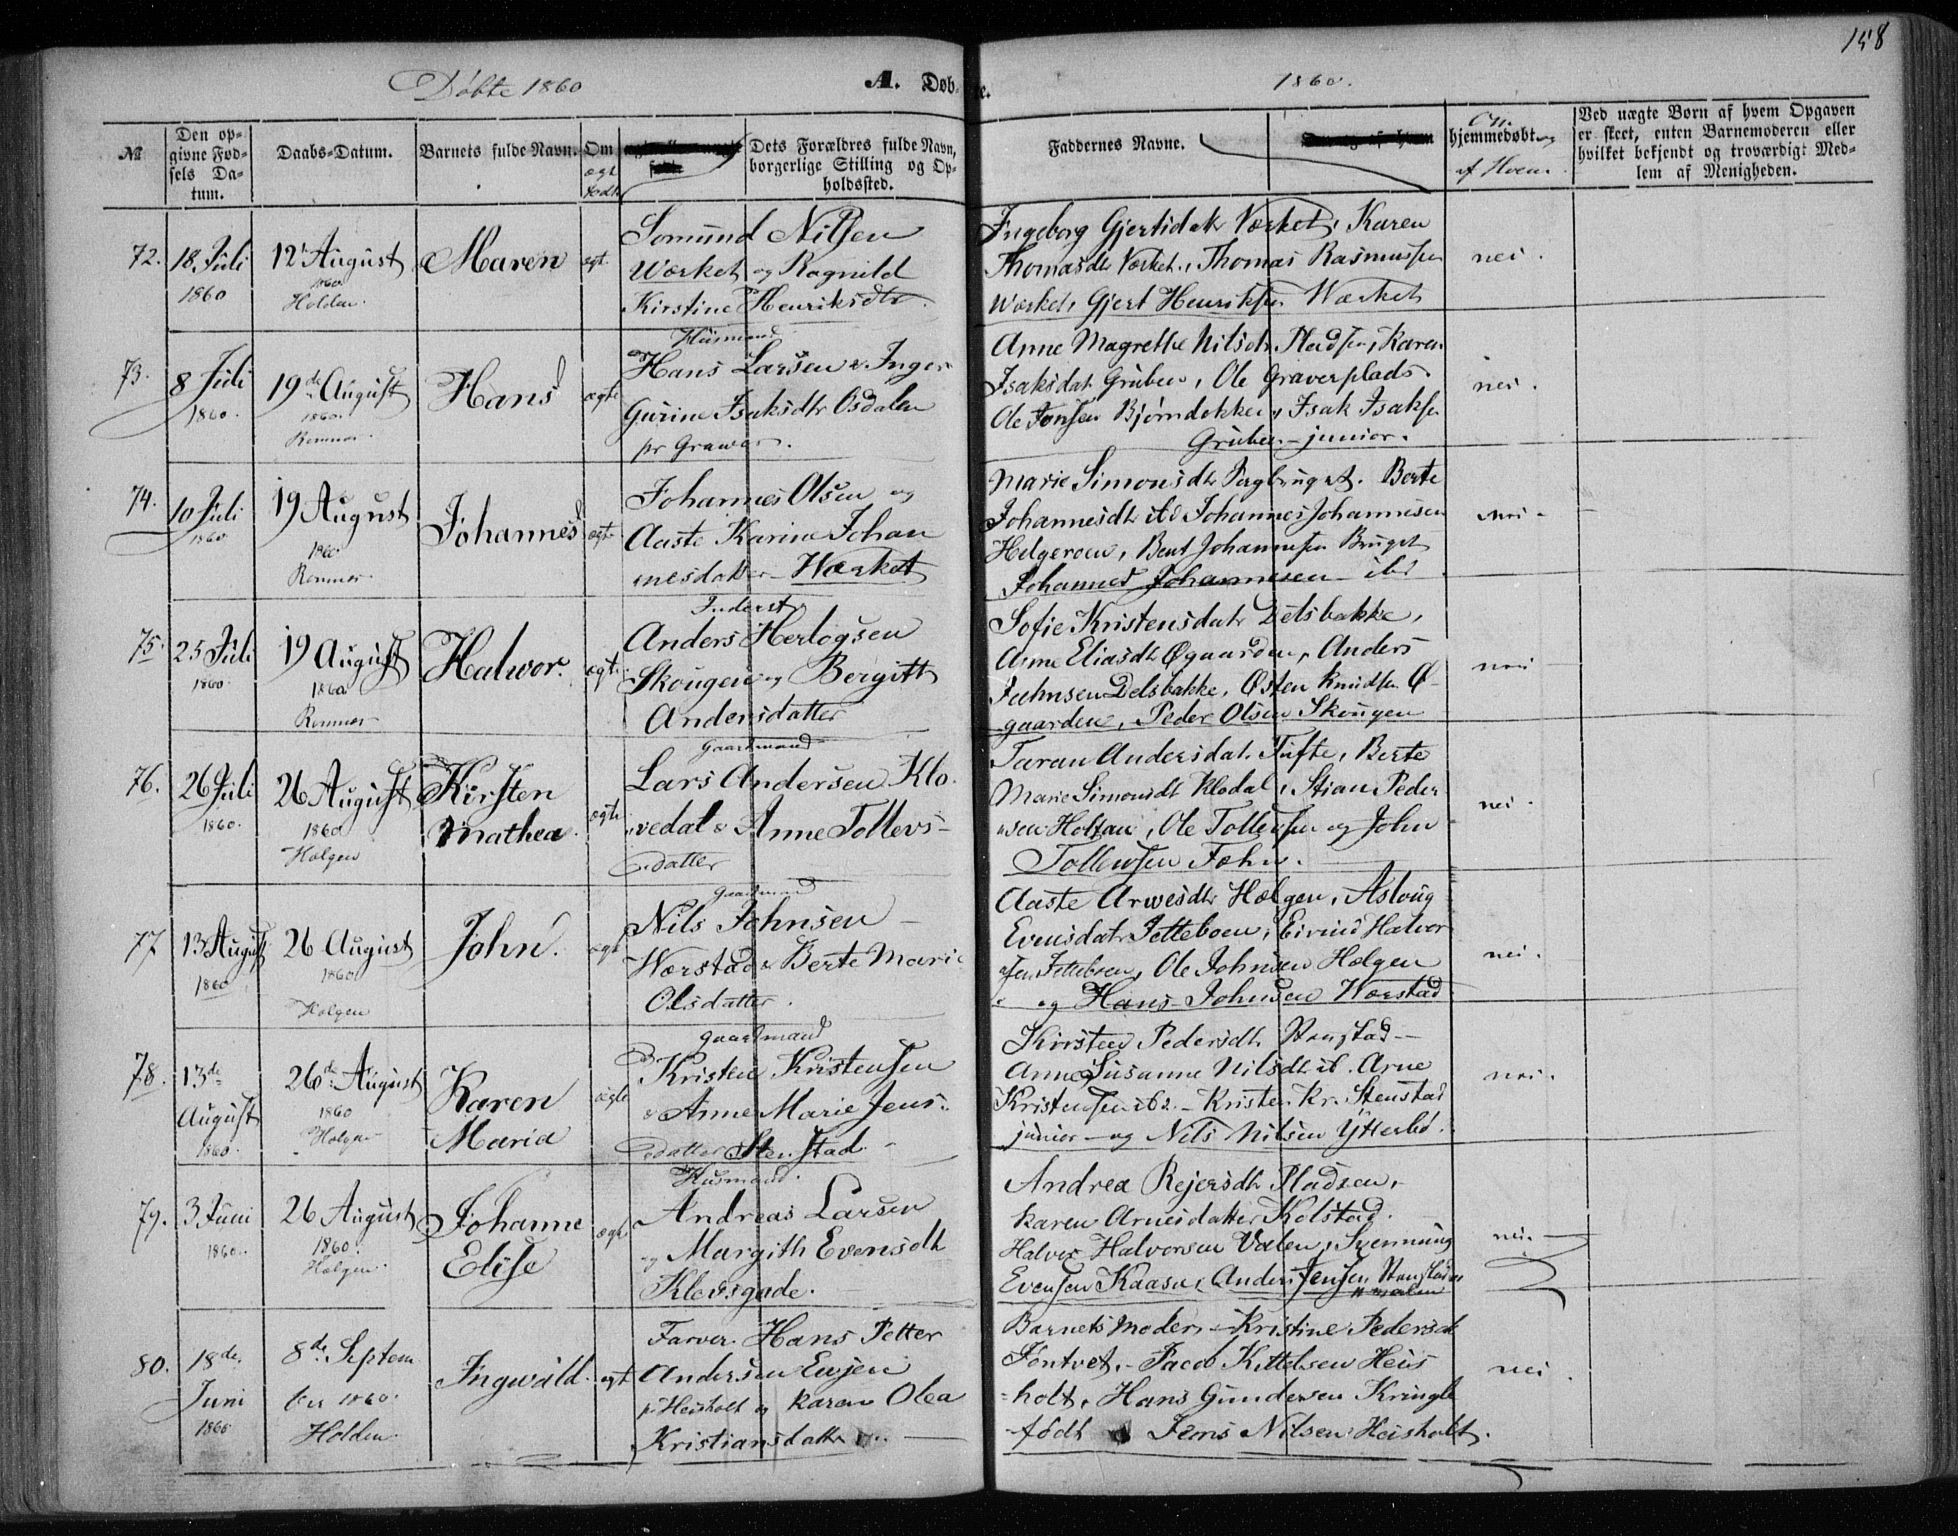 158
Døbte 1860
A. Døb- te.
1860.
№
Den op-
givne Fød-
sels Da-
tum.
Daabs-Datum.
Barnets fulde Navn.
Om
ægt
født
Dets Forældres fulde Navn,
borgerlige Stilling og Op-
holdssted.
Faddernes Navne.
Om
hjemmedøbt og
af Hvem.
Ved uægte Børn af hvem Opgaven
er skeet, enten Barnemoderen eller
hvilket bekjendt og troværdigt Med-
lem af Menigheden.
72.
18 Juli
1860
12 August
1860
Holden.
Maren
ægt.
Somund Nilsen
Wærket og Ragnild
Kirstine Henriksdtr.
Ingeborg Gjertsdatr Værket, Karen
Thomasdtr Værket, Thomas Rasmussen
Wærket, Gjert Henriksen Wærket
nei.
73.
8 Juli
1860.
19de August
1860.
Romnes.
Hans
ægte
Husmand
Hans Larsen & Inger
Gurine Isaksdtr Osdalen
pr Grawar.
Anne Magrethe Nilsdtr Pladsen, Karen
Isaksdat Gruben, Ole Graverplads
Ole Jonsen Bjørndokken, Isak Isaksen
Gruben junior.
nei.
74.
10 Juli
1860
19 August
1860
Romnes
Johannes
ægte
Johannes Olsen og
Aaste Karine Johan
nesdatter Wærket
Marie Simonsdtr Bruget. Berte
Johannesdtr ibd Johannes Johannesen
Helgeroen, Bent Johannesen Bruget
Johannes Johannesen ibd
nei
75.
25 Juli
1860
19 August
1860
Romnes
Halvor.
ægte
Inderst
Anders Herlogsen
Skougen og Bergitt
Andersdatter
Sofie Kristensdatr Delsbakke,
Anne Eliasdtr Øgaarden, Anders
Johnsen Delsbakke, Østen Knudsen Ø-
gaarden, Peder Olsen Skougen
nei
76.
26 Juli
1860.
26 August
1860
Holgen
Kirsten
Mathea.
ægte
Gaardmand
Lars Andersen Klo-
vedal & Anne Tollevs-
datter
Taran Andersdat. Tufte, Berte
Marie Simonsdt Klodal, Stian Peder
sen Holtan, Ole Tollefsen og John
Tollefsen
nei.
77
13 August
1860
26 August
1860
Holgen
John.
ægte
Gaardmand
Nils Johnsen
Wærstad & Berte Marie
Olsdatter.
Aaste Arwesdtr Hælgen, Aslaug
Evensdatr Jetteboen, Eivind Halvor
sen Jetteboen, Ole Johnsen Hælgen
og Hans Johnsen Wærstad
nei.
78.
13de
August
1860.
26de August
1860
Holgen
Karen
Maria
ægte
Gaardmand
Kristen Kristensen
& Anne Marie Jens-
datter Stenstad
Kirsten Pedersdt. Stenstad
Anne Susanne Nilsdt ib. Arne
Kristensen ibd. Kristen Kr. Stenstad
junior og Nils Nilsen Ytterbø.
nei.
79.
3 Juni
1860.
26 August
1860.
Holgen.
Johanne
Elise
ægte
Husmand.
Andreas Larsen
og Margith Evensdt
Klevsgade.
Andrea Rejersdtr Pladsen,
Karen Arnesdatter Kolstad.
Halvor Halvorsen Valen, Svennung
Evensen Kaasa, Anders Jensen Stenstad
nei.
80.
18de
Juni
1860
8de Septem
ber 1860.
Holden.
Ingwald.
ægt
Farver. Hans Petter
Andersen Ewjen
pr Heisholt og Karen Olea
Kristiansdatter
Barnets Moder, Kristine Pedersdt
Jøntvet, Jacob Kittelsen Heis
holt, Hans Gundersen Kringle
født Jens Nilsen Heisholt.
nei.